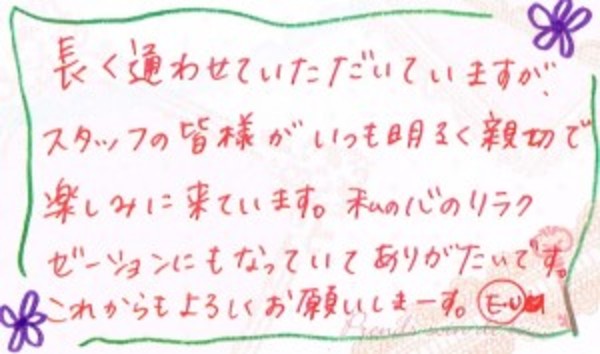 長く通わせていただいていますが、
スタッフの皆様がいつも明るく親切で
楽しみに来ています。私の心のリラク
ゼーションにもなっていてありがたいです。
これからもよろしくお願いしまーす。